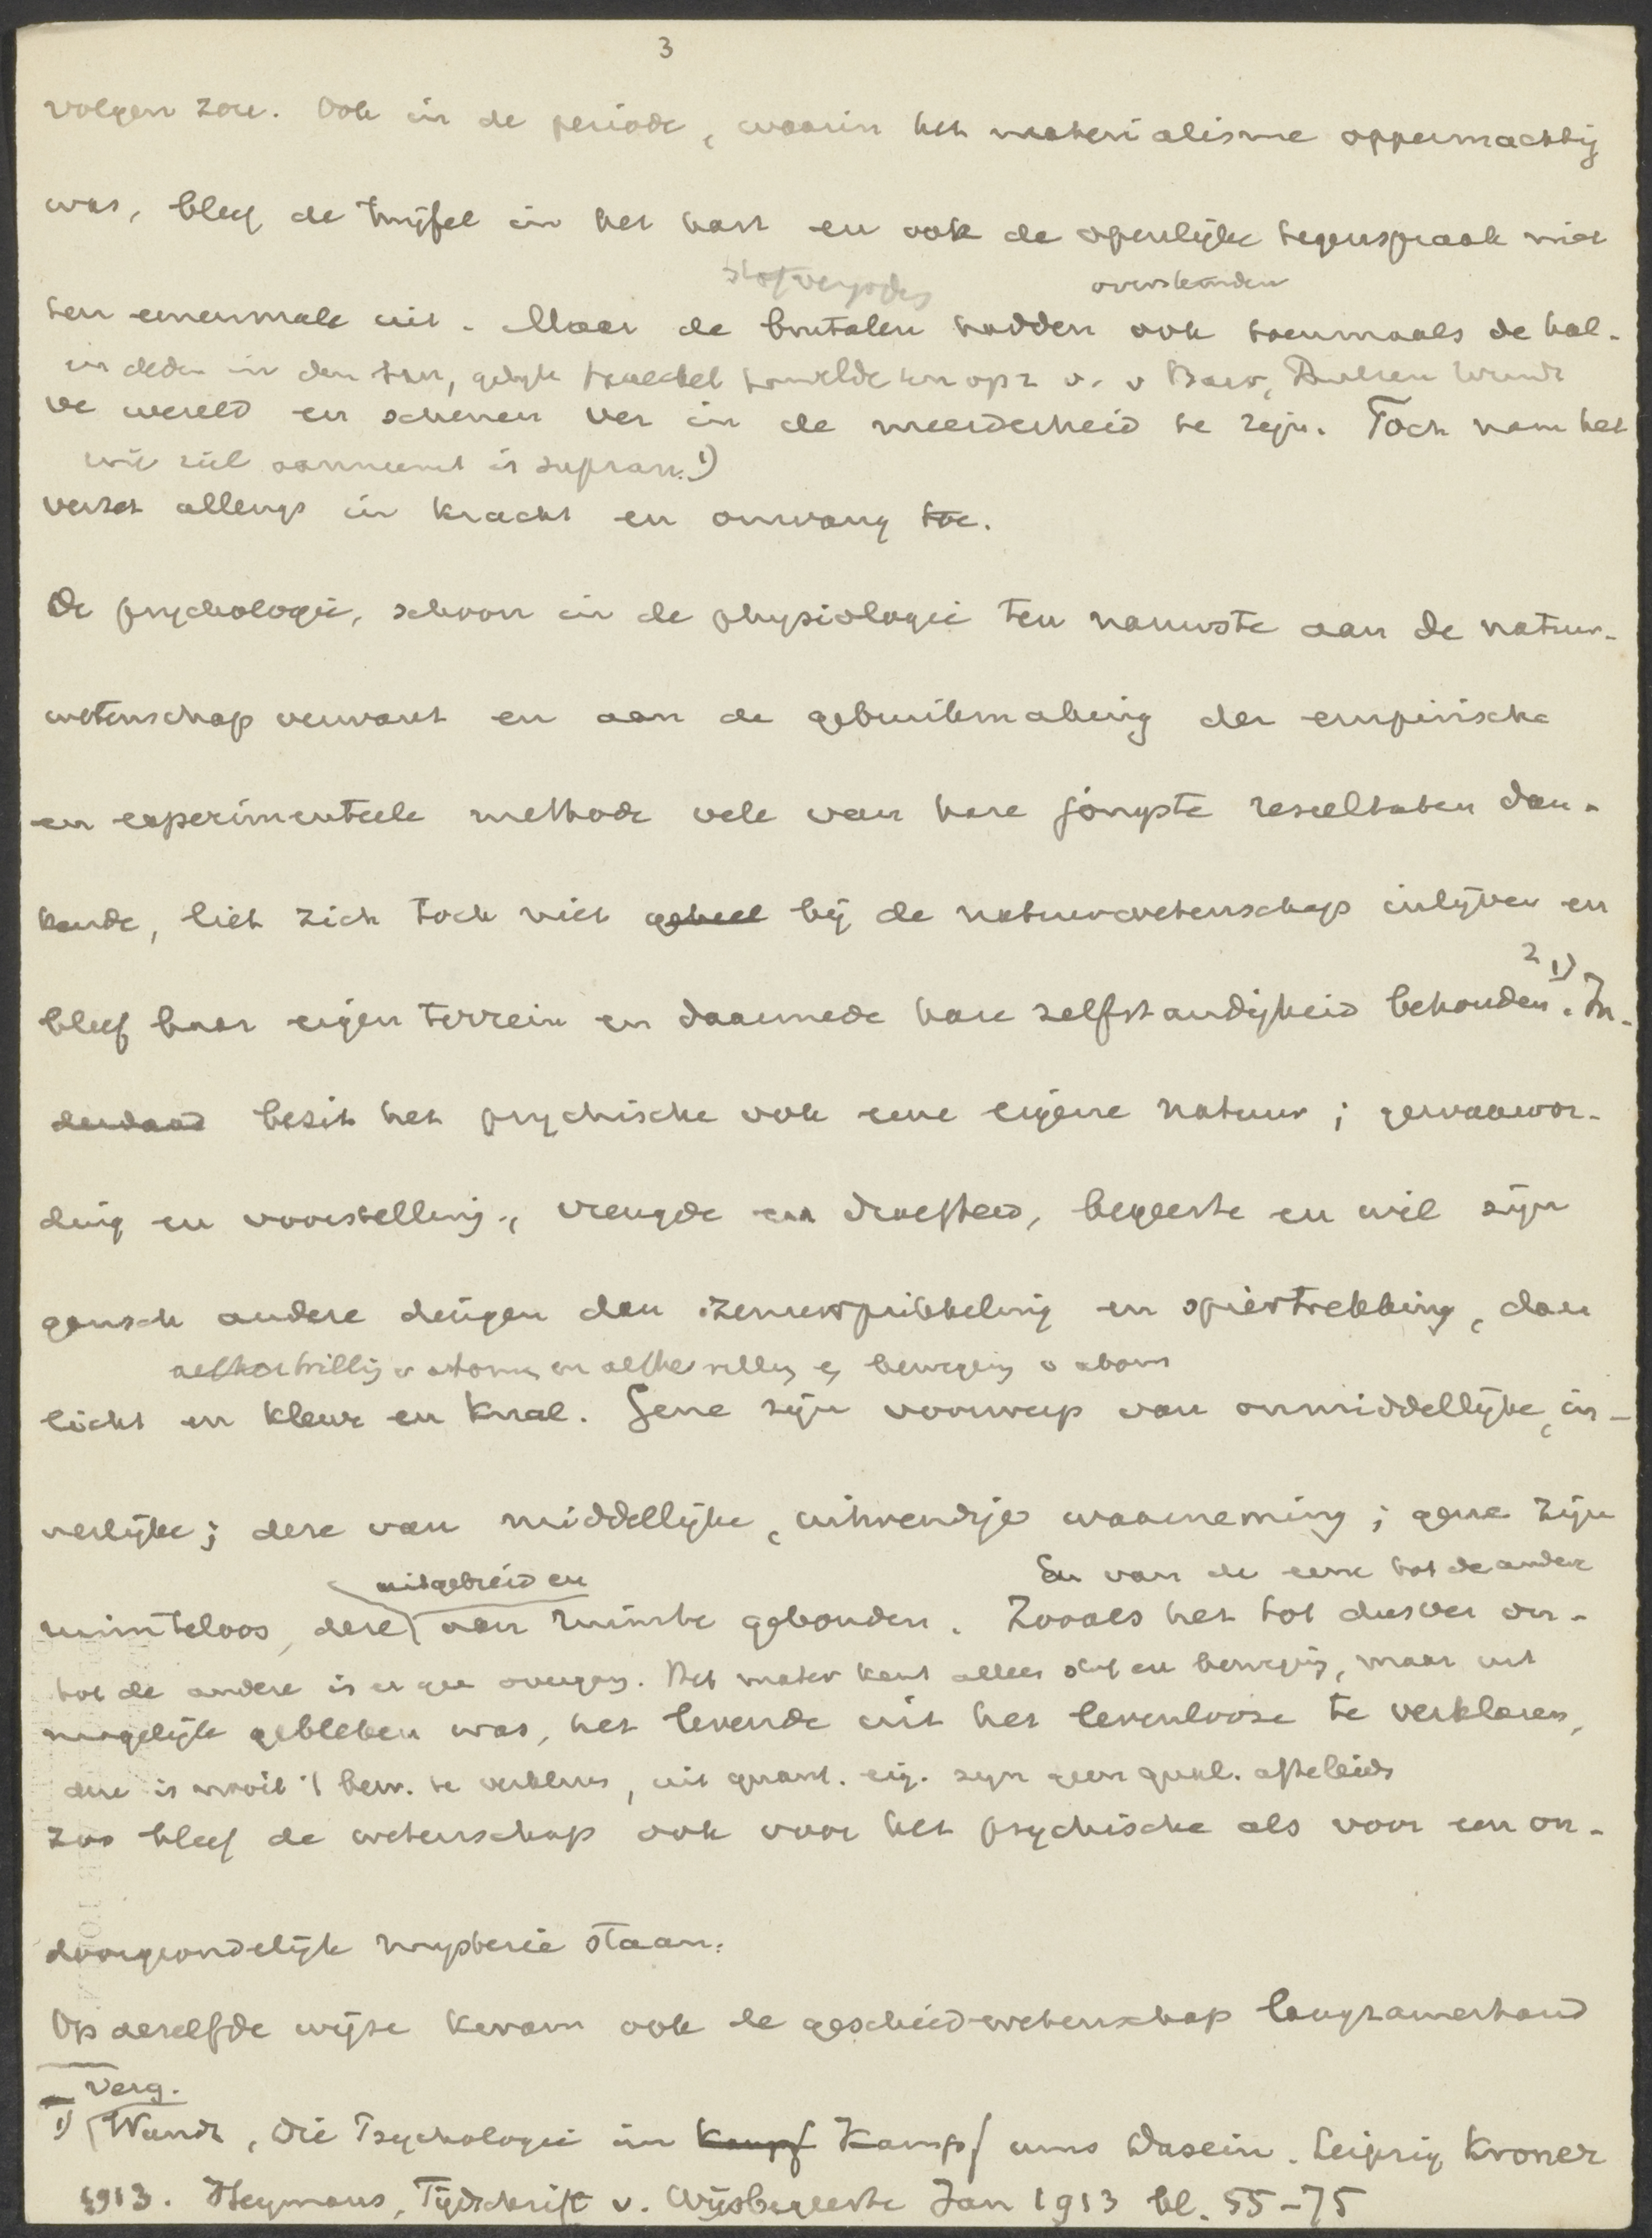 3
volgen zou. Ook in de periode, waarin het materialisme oppermachtig
was, bleef de twijfel in het hart en ook de openlijke tegenspraak niet
stofvergodes overstemden
ten eenenmale uit. Maar de brutalen hadden ook toenmaals de hal-
en deden in den ban, gelijk Haeckel v. v Baer,
ve wereld en schenen ver in de meerderheid te zijn. Toch nam het
wie ziel aanneemt is supran. 1)
verzet allengs in kracht en omvang toe.
De psychologie, schoon in de physiologie ten nauwste aan de natuur-
wetenschap verwant en aan de gebruikmaking der empirische
en experimenteele methode vele van hare jongste resultaten dan-
kende, liet zich toch niet geheel bij de natuurwetenschap inlijven en
2 1)
bleef haar eigen terrein en daarmede hare zelfstandigheid behouden. In-
derdaad bezit het psychische ook eene eigene natuur; gewaarwor-
ding en voorstelling, vreugde en droefheid, begeerte en wil zijn
gansch andere dingen dan zenuwprikkeling en spiertrekking, dan
aethertrilling v atomen en beweging v atoms
licht en kleur en knal. Gene zijn voorwerp van onmiddellijke, in-
nerlijke; deze van middellijke, uitwendige waarneming; gene zijn
uitgebreid en En van de eene tot de andere
ruimteloos, deze aan ruimte gebonden. Zooals het tot dusver on-
tot de andere is er gee overgang. Het mater kent alleen stof en beweging, maar uit
mogelijk gebleken was, het levende uit het levenlooze te verklaren,
deze is nooit 't bew. te verklaren, uit quant. eig. zijn geen qual. afteleiden
zoo bleef de wetenschap ook voor het psychische als voor een on-
doorgrondelijk mysterie staan.
Op dezelfde wijze kwam ook de geschiedwetenschap langzamerhand
Verg.
1) Wundt, Die Psychologie im Kampf Kampf ums Dasein. Leipzig Kroner
1913. Heymans, Tijdschrift v. Wijsbegeerte Jan 1913 bl. 55-75